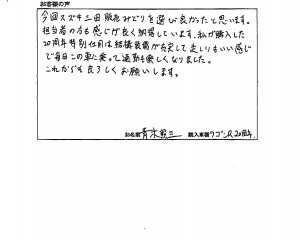 お客様の声
今回スズキ三田販売みどりを選び良かったと思います。
担当者の方も感じが良く納得しています。私が購入した
20周年特別仕様は結構装備が充実して走りもいい感じ
で毎日この車に乗って通勤も楽しくなりました。
これからも宜ろしくお願いします。
お名前 青木 三 購入車種 ワゴンR 20周年